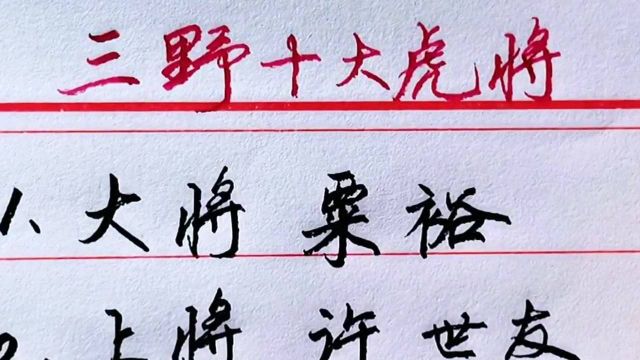 三野十大虎将
1、大将 粟裕
2、上将 许世友